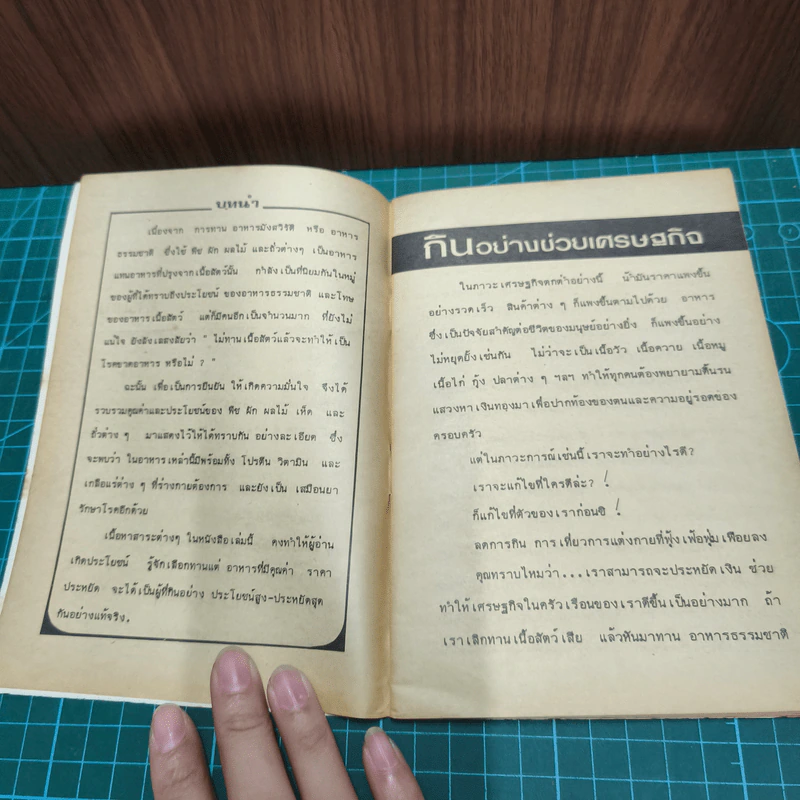 บทนำ
เนื่องจาก การทาน อาหารมังสวิรัติ หรือ อาหาร
ธรรมชาติ ซึ่งใช้ พืช ผัก ผลไม้ และถั่วต่างๆ เป็นอาหาร
แทนอาหารที่ปรุงจากเนื้อสัตว์นั้น กำลังเป็นที่นิยมกันในหมู่
ของผู้ที่ได้ทราบถึงประโยชน์ ของอาหารธรรมชาติ และโทษ
ของอาหารเนื้อสัตว์ แต่ก็มีคนอีกเป็นจำนวนมาก ที่ยังไม่
แน่ใจ ยังลังเลสงสัยว่า " ไม่ทานเนื้อสัตว์แล้วจะทำให้เป็น
โรคขาดอาหาร หรือไม่ ? "
ฉะนั้น เพื่อเป็นการยืนยัน ให้เกิดความมั่นใจ จึงได้
รวบรวมคุณค่าและประโยชน์ของ พืช ผัก ผลไม้ เห็ด และ
ถั่วต่าง ๆ มาแสดงไว้ให้ได้ทราบกัน อย่างละเอียด ซึ่ง
จะพบว่า ในอาหารเหล่านี้มีพร้อมทั้ง โปรตีน วิตามิน และ
เกลือแร่ต่าง ๆ ที่ร่างกายต้องการ และยังเป็น เสมือนยา
รักษาโรคอีกด้วย
เนื้อหาสาระต่างๆ ในหนังสือเล่มนี้ คงทำให้ผู้อ่าน
เกิดประโยชน์ รู้จักเลือกทานแต่ อาหารที่มีคุณค่า ราคา
ประหยัด จะได้เป็นผู้ที่กินอย่าง ประโยชน์สูง-ประหยัดสุด
กันอย่างแท้จริง.
กินอย่างช่วยเศรษฐกิจ
ในภาวะเศรษฐกิจตกต่ำอย่างนี้ น้ำมันราคาแพงขึ้น
อย่างรวดเร็ว สินค้าต่าง ๆ ก็แพงขึ้นตามไปด้วย อาหาร
ซึ่งเป็นปัจจัยสำคัญต่อชีวิตของมนุษย์อย่างยิ่ง ก็แพงขึ้นอย่าง
ไม่หยุดยั้งเช่นกัน ไม่ว่าจะเป็นเนื้อวัว เนื้อควาย เนื้อหมู
เนื้อไก่ กุ้ง ปลาต่าง ๆ ฯลฯ ทำให้ทุกคนต้องพยายามดิ้นรน
แสวงหาเงินทองมาเพื่อปากท้องของตนและความอยู่รอดของ
ครอบครัว
แต่ในภาวะการณ์เช่นนี้เราจะทำอย่างไรดี?
เราจะแก้ไขที่ใครดีล่ะ? !
ก็แก้ไขที่ตัวของเราก่อนซิ !
ลดการกิน การเที่ยวการแต่งกายที่ฟุ้งเฟ้อฟุ่มเฟือยลง
คุณทราบไหมว่า...เราสามารถจะประหยัดเงิน ช่วย
ทำให้เศรษฐกิจในครัวเรือนของเราดีขึ้นเป็นอย่างมาก ถ้า
เราเลิกทานเนื้อสัตว์เสีย แล้วหันมาทาน อาหารธรรมชาติ